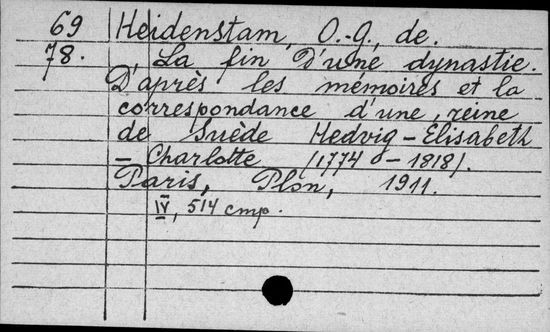 69 Heidenstam, O.-G., de.
78. La fin d'une dynastie.
D'après les mémoires et la
correspondance d'une reine
de Suède Hedvig-Elisabeth
-Charlotte /1774-1818/.
Paris, Plon, 1911.
IV, 514 стр.